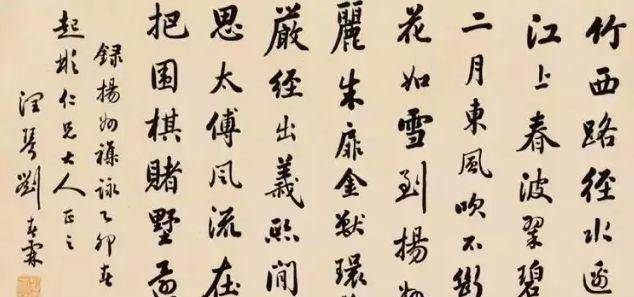 竹西路径水
江上春波翠碧
二月東風吹不
花如雪到揚州
麗朱扉金獸環
嚴経出義熙間
思太傅風流在
把围棋賭墅
録揚州襍詠乙卯春
起彬仁兄大人正之
潤琴劉春霖